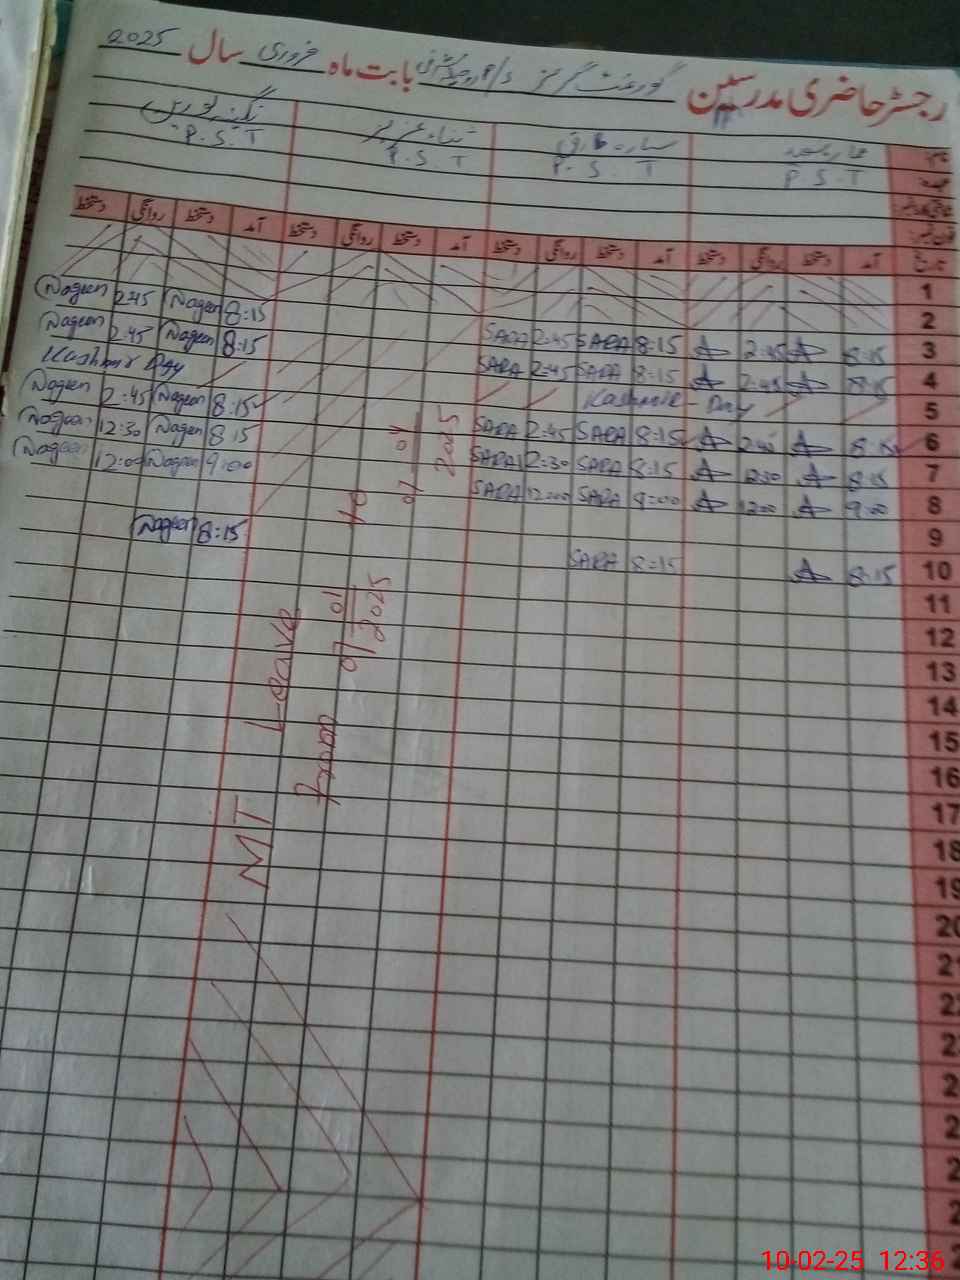 رجسٹر حاضری مدرسین گورنمنٹ گرلز بابت ماہ فروری سال 2025
نام سارہ طارق ثناء عزیز نگینہ
عہدہ P.S.T P.S.T P.S.T P.S.T
تاریخ آمد دستخط روانگی دستخط آمد دستخط روانگی دستخط آمد دستخط روانگی دستخط آمد دستخط روانگی دستخط
1
2
3 8:15 2:45 8:15 SARA 2:45 SARA 8:15 Nageen 2:45 Nageen
4 8:15 2:45 8:15 SARA 2:45 SARA 8:15 Nageen 2:45 Nageen
5 Kashmir - Day Kashmir Day
6 8:15 2:45 8:15 SARA 2:45 SARA 8:15 Nageen 2:45 Nageen
7 8:15 12:30 8:15 SARA 12:30 SARA 8:15 Nageen 12:30 Nageen
8 9:00 12:00 9:00 SARA 12:00 SARA 9:00 Nageen 12:00 Nageen
9
10 8:15 8:15 SARA 8:15 Nageen
11
12
13
14
15
16
17
18
19
20
MT Leave
From 07/01/2025 to 07/04/2025
10-02-25 12:36